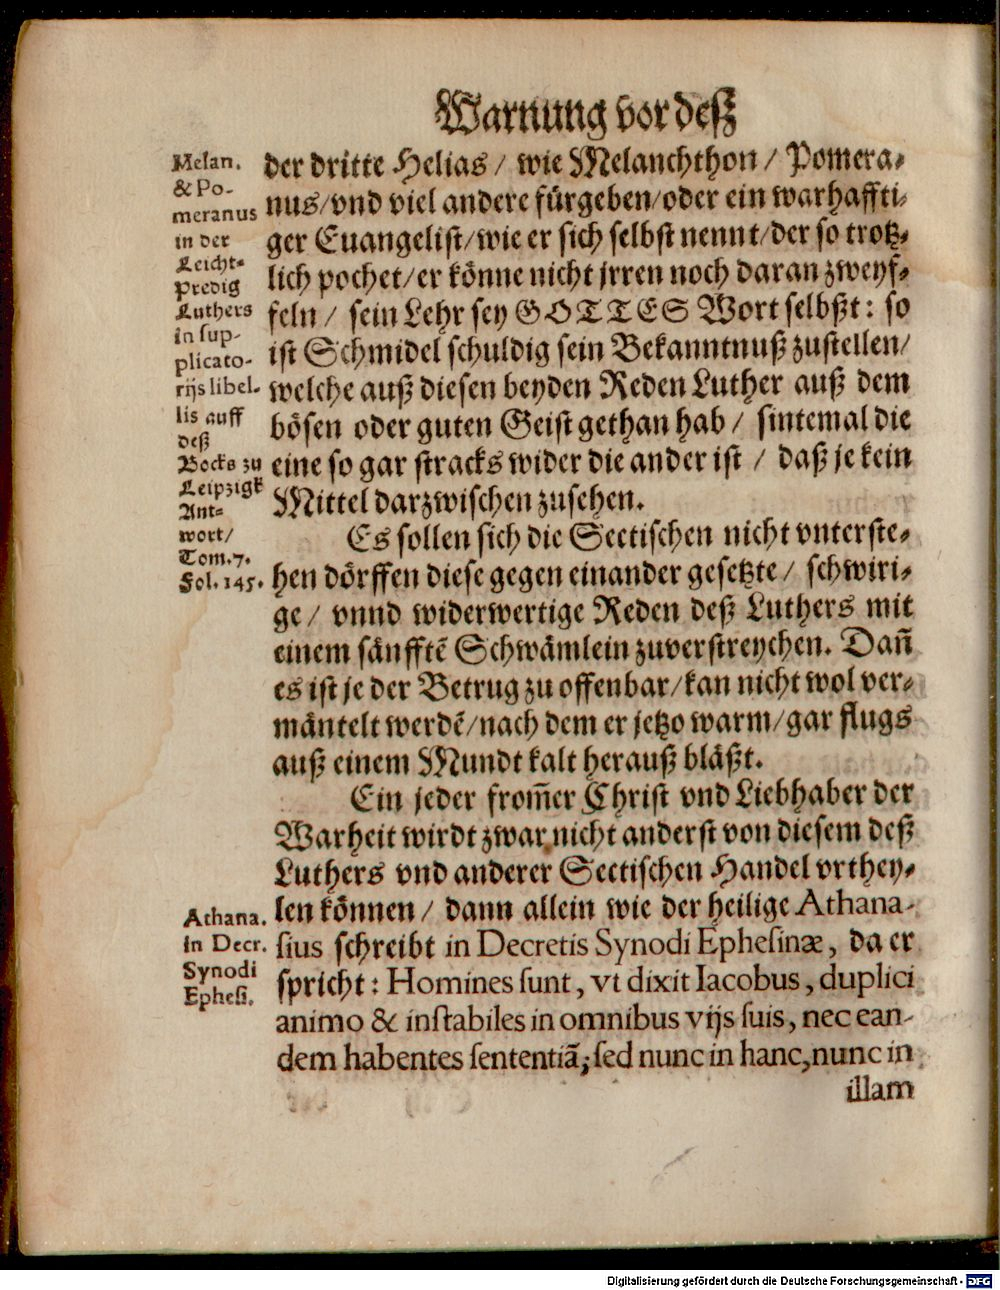 Warnung vor deß
Melan.
& Po-
meranus
in der
Leicht-
Predig
Luthers
in sup-
plicato-
rijs libel-
lis auff
deß
Bocks zu
Leipzigk
Ant-
wort/
Tom.7.
Fol. 145.
der dritte Helias / wie Melanchthon / Pomera-
nus/vnd viel andere fürgeben/oder ein warhaffti-
ger Euangelist/wie er sich selbst nennt/der so trotz-
lich pochet/er könne nicht jrren noch daran zweyf-
feln / sein Lehr sey GOTTES Wort selbßt: so
ist Schmidel schuldig sein Bekanntnuß zustellen/
welche auß diesen beyden Reden Luther auß dem
bösen oder guten Geist gethan hab / sintemal die
eine so gar stracks wider die ander ist / daß je kein
Mittel darzwischen zusehen.
Es sollen sich die Sectischen nicht vnterste-
hen dörffen diese gegen einander gesetzte / schwiri-
ge / vnnd widerwertige Reden deß Luthers mit
einem sänfftē Schwämlein zuverstreychen. Dañ
es ist je der Betrug zu offenbar/kan nicht wol ver-
mäntelt werdē/nach dem er jetzo warm/gar flugs
auß einem Mundt kalt herauß bläßt.
Ein jeder from̃er Christ vnd Liebhaber der
Warheit wirdt zwar nicht anderst von diesem deß
Luthers vnd anderer Sectischen Handel vrthey-
len können / dann allein wie der heilige Athana-
sius schreibt in Decretis Synodi Ephesinæ, da er
spricht: Homines sunt, vt dixit Iacobus, duplici
animo & instabiles in omnibus vijs suis, nec ean-
dem habentes sententiã; sed nunc in hanc, nunc in
Athana.
in Decr.
Synodi
Ephesi.
illam
Digitalisierung gefördert durch die Deutsche Forschungsgemeinschaft - DFG